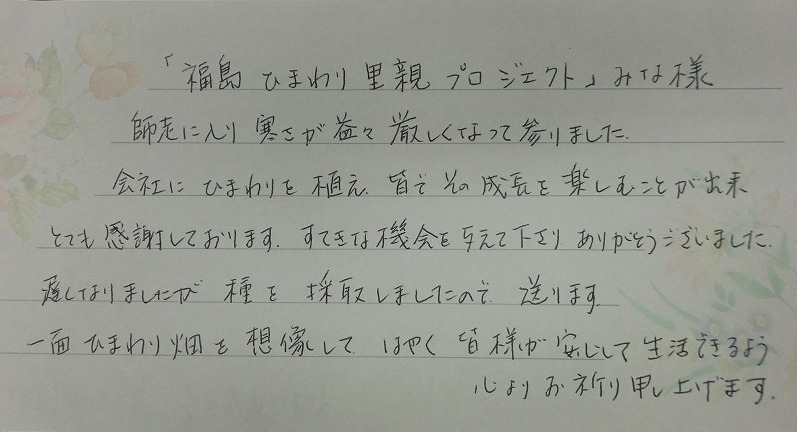 「福島 ひまわり 里親 プロジェクト」みな様
師走に入り 寒さが 益々 厳しくなって 参りました.
会社に ひまわりを 植え. 皆で その 成長を 楽しむことが 出来
とても 感謝しております. すてきな 機会を 与えて 下さり ありがとうございました.
遅くなりましたが 種を 採取しましたので. 送ります
一面 ひまわり 畑を 想像して. はやく 皆様が 安心して 生活できるよう
心よりお祈り申し上げます.